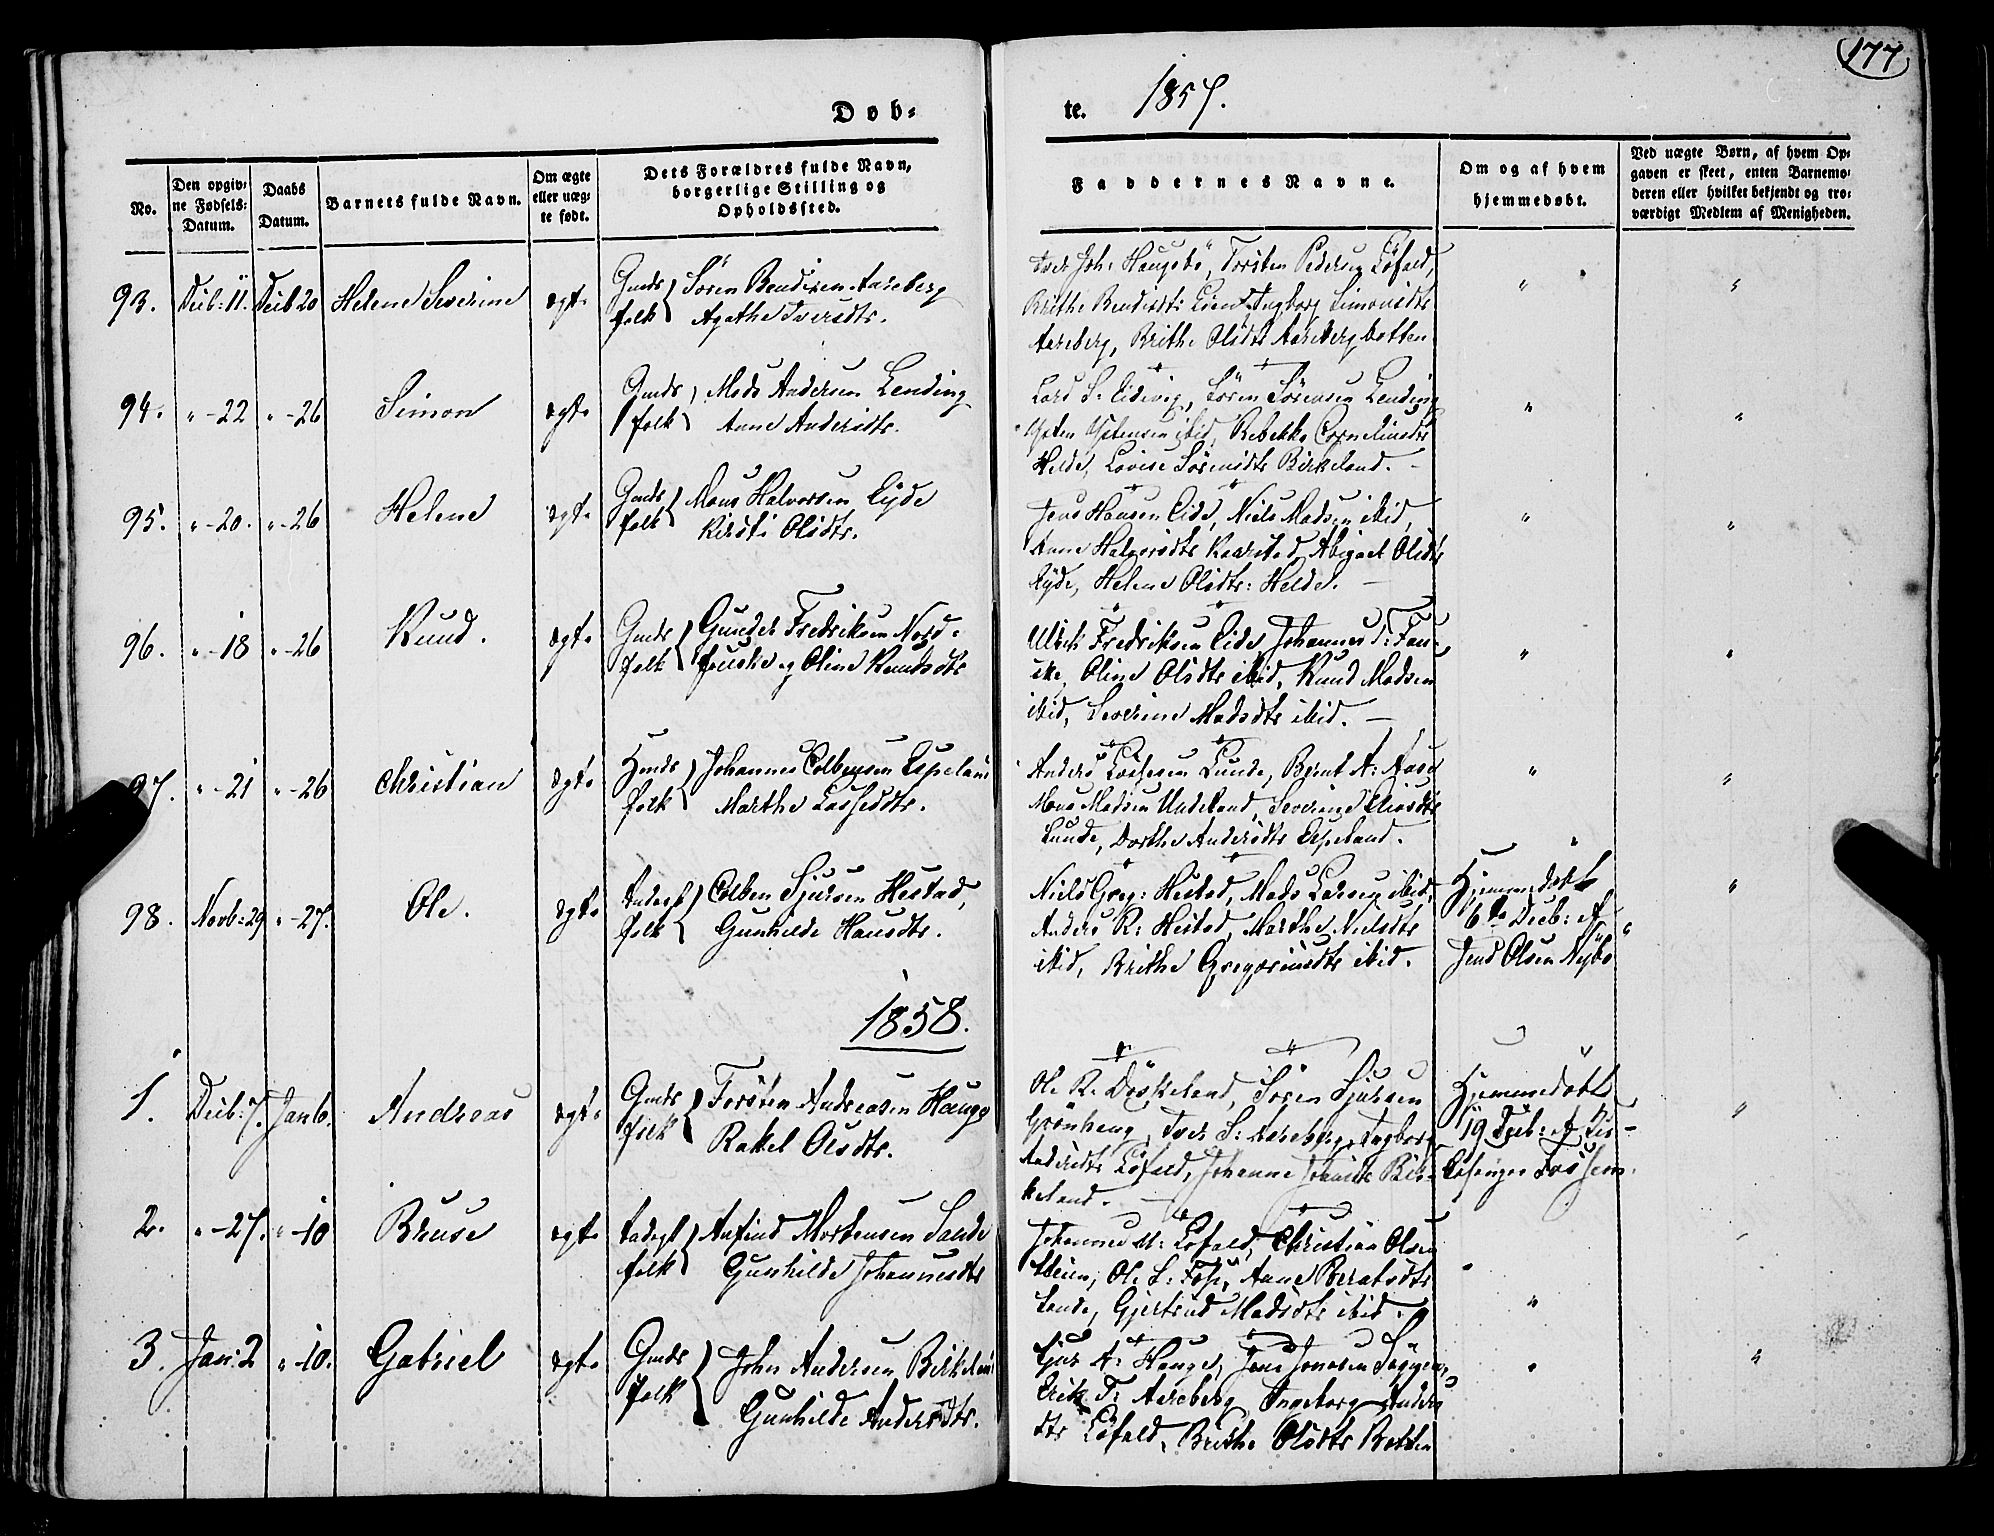 177
Døb-
te. 1857.
No.
Den opgiv-
ne Fødsels-
Datum.
Daabs
Datum.
Barnets fulde Navn.
Om ægte
eller uæg-
te født.
Dets Forældres fulde Navn,
borgerlige Stilling og
Opholdssted.
Faddernes Navne.
Om og af hvem
hjemmedøbt.
Ved uægte Børn, af hvem Op-
gaven er skeet, enten Barnemo-
deren eller hvilket bekjendt og tro-
værdigt Medlem af Menigheden.
93. Decb: 11. Decb 20 Helene Severine ægte
Gmds folk Søren Bendixen Aareberg
Agathe Iversdtr.
Iver Joh: Haugsbø, Torsten Pedersen Løfald,
Brithe Ingborg Simonsdtr
Aareberg, Brithe Olsdtr Aareberg botten
94. " -22 " -26 Simon ægte
Gmds folk Mads Andersen Lending
Anne Andersdtr.
Lars S: Eidevig, Søren Sørensen Lending
ibid, Rebekka Corneliusdtr
Helde, Lovise Sørensdtr Birkeland. -
95. " -20. " -26 Helene ægte
Gmds folk Mons Halvorsen Eyde
Kirsti Olsdtr.
Jens Hansen Eide, Niels Madsen ibid,
Anne Halvorsdtr Abigael Olsdtr
Eyde, Helene Olsdtr: Helde. -
96. " -18 " -26 Knud. ægte
Gmds folk Gunder Fredriksen Nord-
fouske og Oline Knudsdtr
Ulrik Fredriksen Eide, Johannes d: Fou-
ske, Oline Olsdtr ibid, Knud Madsen
ibid, Severine Madsdtr ibid. -
97. " -21 " -26 Christian ægte
Hmds folk Johannes Colbensen Espeland
Marthe Lassedtr.
Anders Lassesen Lunde, Bernt A: Aase
Mons Madsen Undeland, Severine
Lunde, Dorthe Andersdtr Espeland.
98. Novb: 29 " -27. Ole. ægte
Inderst folk Colben Sjursen Hestad,
Gunhilde Hansdtr.
Niels Greg: Hestad, Mads Larsen ibid,
Anders R: Hestad, Marthe Nielsdtr
ibid, Brithe Gregoriusdtr ibid.
Hjemmedøbt
6te Decb: af
Jens Olsen Nybø
1858.
1. Decb: 7. Jan 6. Andreas ægte
Gmds folk Torsten Andreasen Hauge
Rakel Olsdtr.
Ole R. Døskeland, Søren Sjursen
Grønheng, Iver S: Aareberg, Ingborg
Andersdtr Løfald, Johanne Johnsdtr Bir-
keland. -
Hjemmedøbt
19 Decb: af Kir-
kesanger
2. " -27. " -10 Bruse ægte
folk Anfind Mortensen Sande
Gunhilde Johannesdtr
Johannes M: Løfald, Christian Olsen
Ole L: Foss, Anne Berntsdtr
Sande, Gjertrud Madsdtr ibid.
3. Jan: 2 " -10. Gabriel ægte
Gmds folk John Andersen Birkeland
Gunhilde Andersdtr.
Sjur A: Hauge, Jens Jonasen
Erik T: Aareberg Ingeborg Anders
dtr Løfald, Brithe Olsdtr Botten